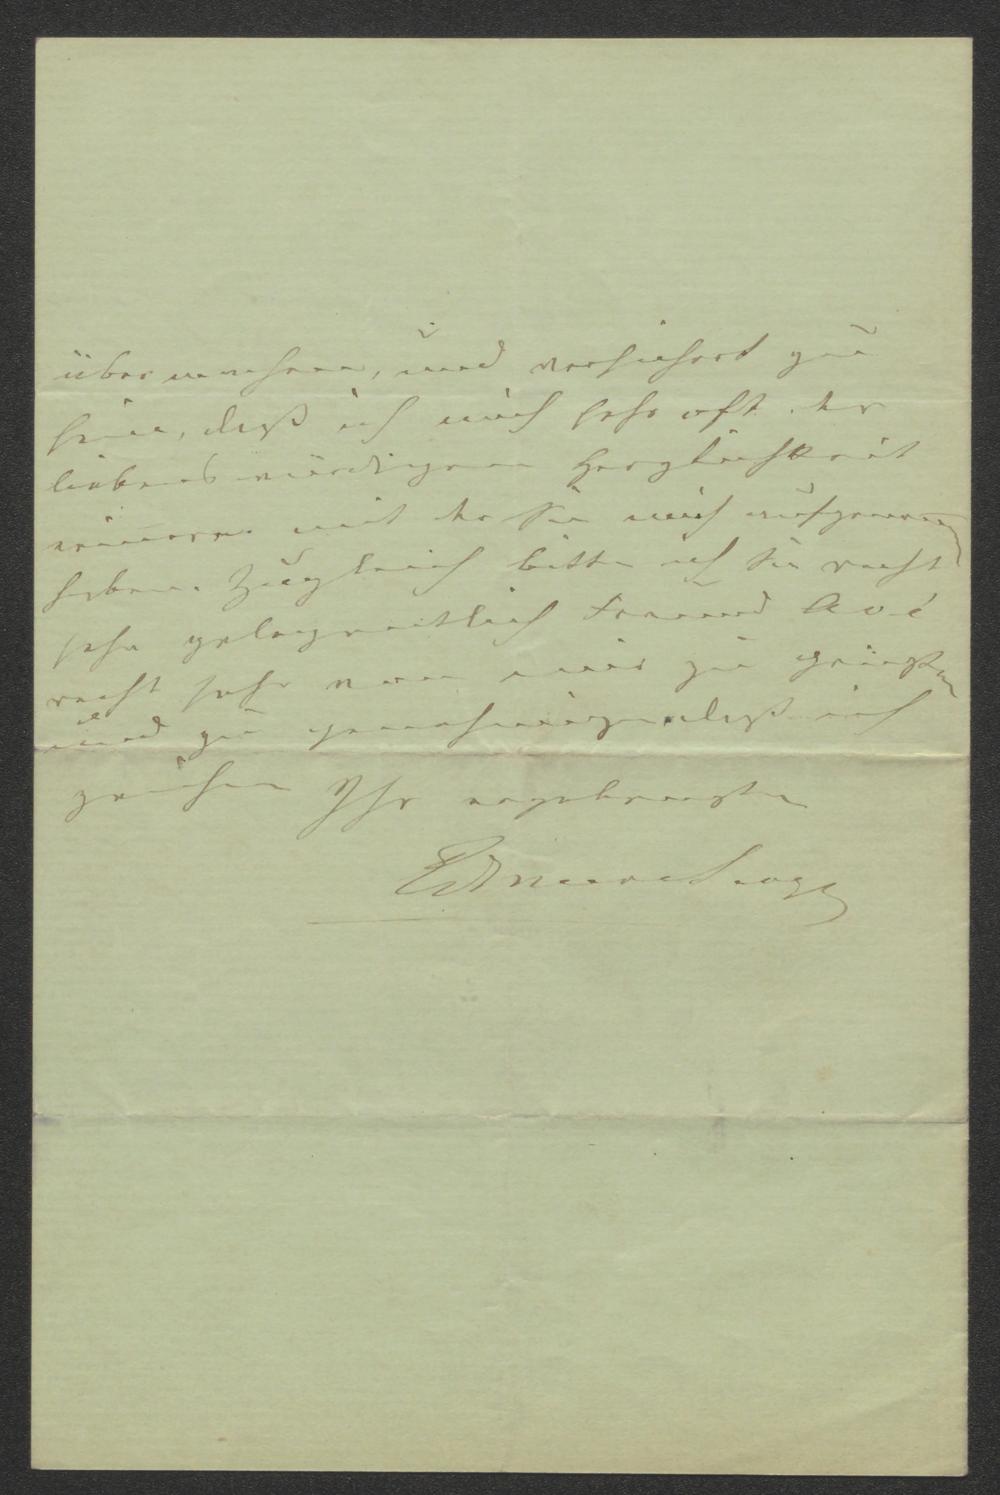 übernehmen, und versichert zu
sein, daß ich mich sehr oft der
liebenswürdigen Herzlichkeit
erinnere mit der Sie mich aufgenommen
haben. Zugleich bitte ich Sie recht
sehr gelegentlich Freund Avé
recht sehr von mir zu grüßen
und zu genehmigen, daß ich
zeichne Ihr ergebenster